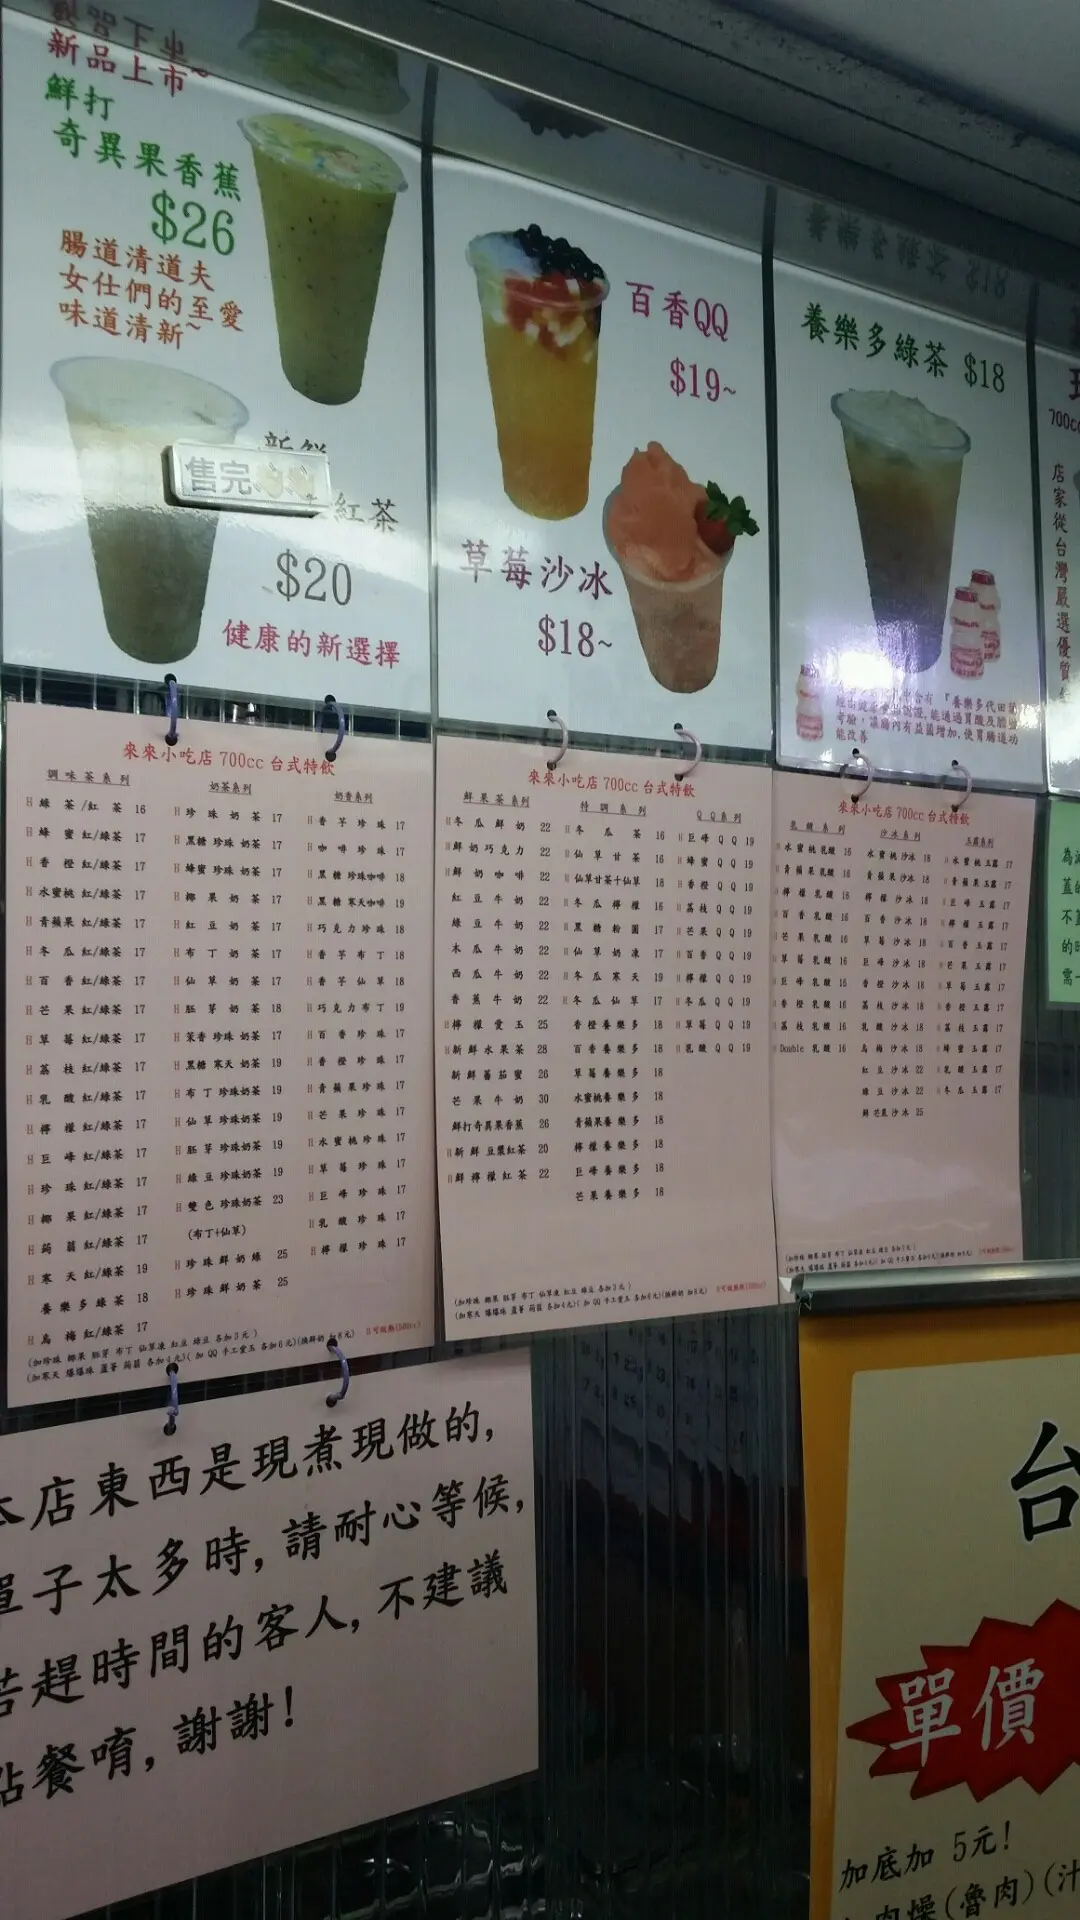 新品上市~
鮮打
奇異果香蕉
$26
腸道清道夫
女仕們的至愛
味道清新~
售完
紅茶
$20
健康的新選擇
百香QQ
$19~
草莓沙冰
$18~
養樂多綠茶 $18
能改善
700cc
店家從台灣嚴選優質
來來小吃店 700cc 台式特飲
調味茶系列
H 綠 茶/紅 茶 16
H 蜂 蜜 紅/綠茶 17
H 香 橙 紅/綠茶 17
H 水蜜桃 紅/綠茶 17
H 青蘋果 紅/綠茶 17
H 冬 瓜 紅/綠茶 17
H 百 香 紅/綠茶 17
H 芒 果 紅/綠茶 17
H 草 莓 紅/綠茶 17
H 荔 枝 紅/綠茶 17
H 乳 酸 紅/綠茶 17
H 檸 檬 紅/綠茶 17
H 巨 峰 紅/綠茶 17
H 珍 珠 紅/綠茶 17
H 椰 果 紅/綠茶 17
H 蒟 蒻 紅/綠茶 17
H 寒 天 紅/綠茶 19
養樂多綠茶 18
H 烏 梅 紅/綠茶 17
奶茶系列
H 珍 珠 奶 茶 17
H 黑糖 珍珠奶茶 17
H 蜂蜜 珍珠奶茶 17
H 椰 果 奶 茶 17
H 紅 豆 奶 茶 17
H 布 丁 奶 茶 17
H 仙 草 奶 茶 17
H 胚 芽 奶 茶 18
H 茉香 珍珠奶茶 17
H 黑糖 寒天奶茶 19
H 布丁 珍珠奶茶 19
H 仙草 珍珠奶茶 19
H 胚芽 珍珠奶茶 19
H 綠豆 珍珠奶茶 19
H 雙色 珍珠奶茶 23
(布丁+仙草)
H 珍珠鮮奶綠 25
H 珍珠鮮奶茶 25
奶香系列
H 香 芋 珍 珠 17
H 咖 啡 珍 珠 17
H 黑糖 珍珠咖啡 18
H 黑糖 寒天咖啡 19
H 巧克力珍珠 18
H 香 芋 布 丁 18
H 香 芋 仙 草 18
H 巧克力布丁 19
H 百 香 珍 珠 17
H 香 橙 珍 珠 17
H 青蘋果珍珠 17
H 芒 果 珍 珠 17
H 水蜜桃珍珠 17
H 草 莓 珍 珠 17
H 巨 峰 珍 珠 17
H 乳 酸 珍 珠 17
H 檸 檬 珍 珠 17
(加珍珠 椰果 胚芽 布丁 仙草凍 紅豆 綠豆 各加3元)
(加寒天 爆爆珠 蘆薈 蒟蒻 各加4元)(加QQ 手工愛玉 各加6元)(換鮮奶 加8元) H可做熱(500cc)
來來小吃店 700cc 台式特飲
鮮果茶系列
H 冬 瓜 鮮 奶 22
H 鮮奶巧克力 22
H 鮮 奶 咖 啡 22
紅 豆 牛 奶 22
綠 豆 牛 奶 22
木 瓜 牛 奶 22
西 瓜 牛 奶 22
香 蕉 牛 奶 22
H 檸 檬 愛 玉 25
H 新鮮水果茶 28
新鮮蕃茄蜜 26
芒 果 牛 奶 30
鮮打奇異果香蕉 26
H 新鮮豆漿紅茶 20
H 鮮檸檬紅茶 22
特調系列
H 冬 瓜 茶 16
H 仙 草 甘 茶 16
H 仙草甘茶+仙草 18
H 冬 瓜 檸 檬 16
H 黑 糖 粉 圓 17
H 仙 草 奶 凍 17
H 冬 瓜 寒 天 19
H 冬 瓜 仙 草 17
香橙養樂多 18
百香養樂多 18
草莓養樂多 18
水蜜桃養樂多 18
青蘋果養樂多 18
檸檬養樂多 18
巨峰養樂多 18
芒果養樂多 18
QQ系列
H 巨 峰 Q Q 19
H 蜂 蜜 Q Q 19
H 香 橙 Q Q 19
H 荔 枝 Q Q 19
H 芒 果 Q Q 19
H 百 香 Q Q 19
H 檸 檬 Q Q 19
H 冬 瓜 Q Q 19
H 草 莓 Q Q 19
H 乳 酸 Q Q 19
(加珍珠 椰果 胚芽 布丁 仙草凍 紅豆 綠豆 各加3元)
(加寒天 爆爆珠 蘆薈 蒟蒻 各加4元)(加QQ 手工愛玉 各加6元)(換鮮奶 加8元) H可做熱(500cc)
來來小吃店 700cc 台式特飲
乳酸系列
H 水蜜桃乳酸 16
H 青蘋果乳酸 16
H 檸 檬 乳 酸 16
H 百 香 乳 酸 16
H 芒 果 乳 酸 16
H 草 莓 乳 酸 16
H 巨 峰 乳 酸 16
H 香 橙 乳 酸 16
H 荔 枝 乳 酸 16
H Double 乳 酸 16
沙冰系列
水蜜桃沙冰 18
青蘋果沙冰 18
檸 檬 沙 冰 18
百 香 沙 冰 18
草 莓 沙 冰 18
巨 峰 沙 冰 18
香 橙 沙 冰 18
荔 枝 沙 冰 18
乳 酸 沙 冰 18
烏 梅 沙 冰 18
紅 豆 沙 冰 22
綠 豆 沙 冰 22
鮮芒果沙冰 25
玉露系列
H 水蜜桃玉露 17
H 青蘋果玉露 17
H 巨 峰 玉 露 17
H 檸 檬 玉 露 17
H 百 香 玉 露 17
H 芒 果 玉 露 17
H 草 莓 玉 露 17
H 香 橙 玉 露 17
H 荔 枝 玉 露 17
H 蜂 蜜 玉 露 17
H 乳 酸 玉 露 17
H 冬 瓜 玉 露 17
本店東西是現煮現做的,
單子太多時,請耐心等候,
若趕時間的客人,不建議
點餐唷,謝謝!
台
單價
加底加 5元!
肉燥(魯肉)(汁